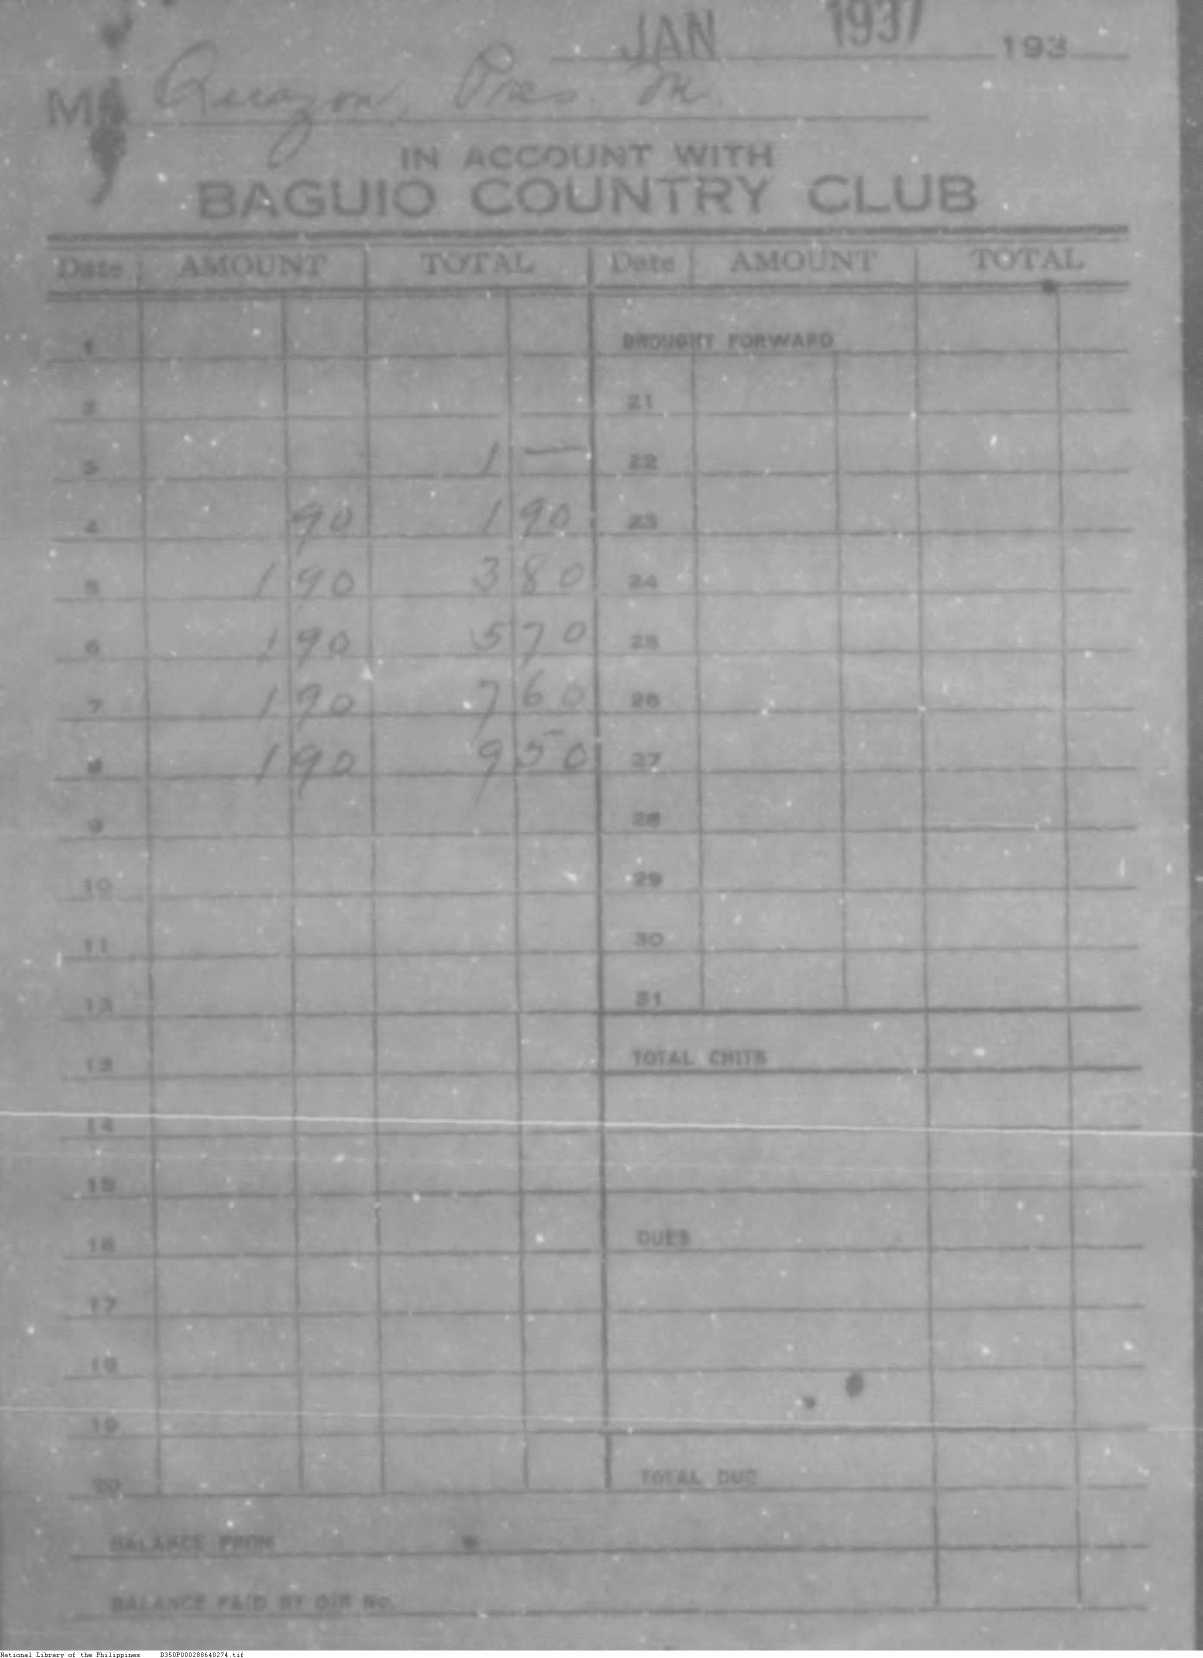 JAN 1937 193
Mr Quezon, Pres. M.
IN ACCOUNT WITH
BAGUIO COUNTRY CLUB
Date AMOUNT TOTAL Date AMOUNT TOTAL
1 BROUGHT FORWARD
2 21
3 1 — 22
4 90 1 90 23
5 1 90 3 80 24
6 1 90 5 70 25
7 1 90 7 60 26
8 1 90 9 50 27
9 28
10 29
11 30
12 31
13 TOTAL CHITS
14
15
16 DUES
17
18
19
20 TOTAL DUE
BALANCE FROM
BALANCE PAID BY O/R No.
National Library of the Philippines D350P000288640274.tif